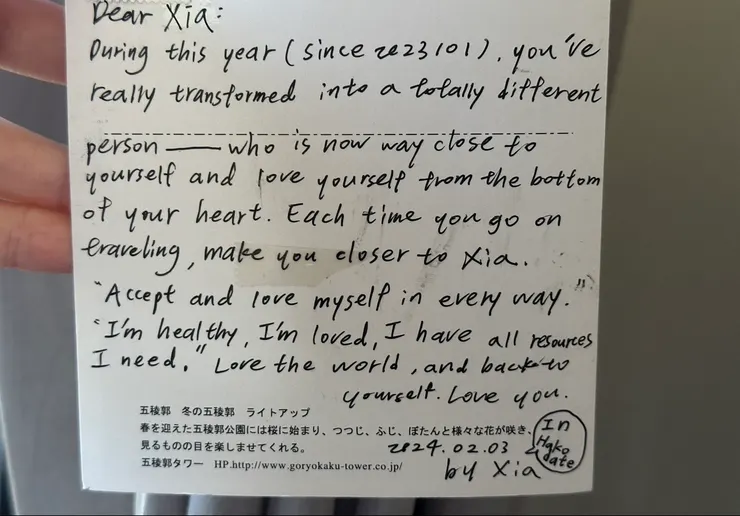 Dear Xia:
During this year (since 2023101), you've
really transformed into a totally different
person — who is now way close to
yourself and love yourself from the bottom
of your heart. Each time you go on
traveling, make you closer to Xia.
"Accept and love myself in every way."
"I'm healthy, I'm loved, I have all resources
I need." Love the world, and back to
yourself. Love you.
五稜郭 冬の五稜郭 ライトアップ
春を迎えた五稜郭公園には桜に始まり、つつじ、ふじ、ぼたんと様々な花が咲き、
見るものの目を楽しませてくれる。
五稜郭タワー HP.http://www.goryokaku-tower.co.jp/
2024.02.03
In
Hako
date
by Xia